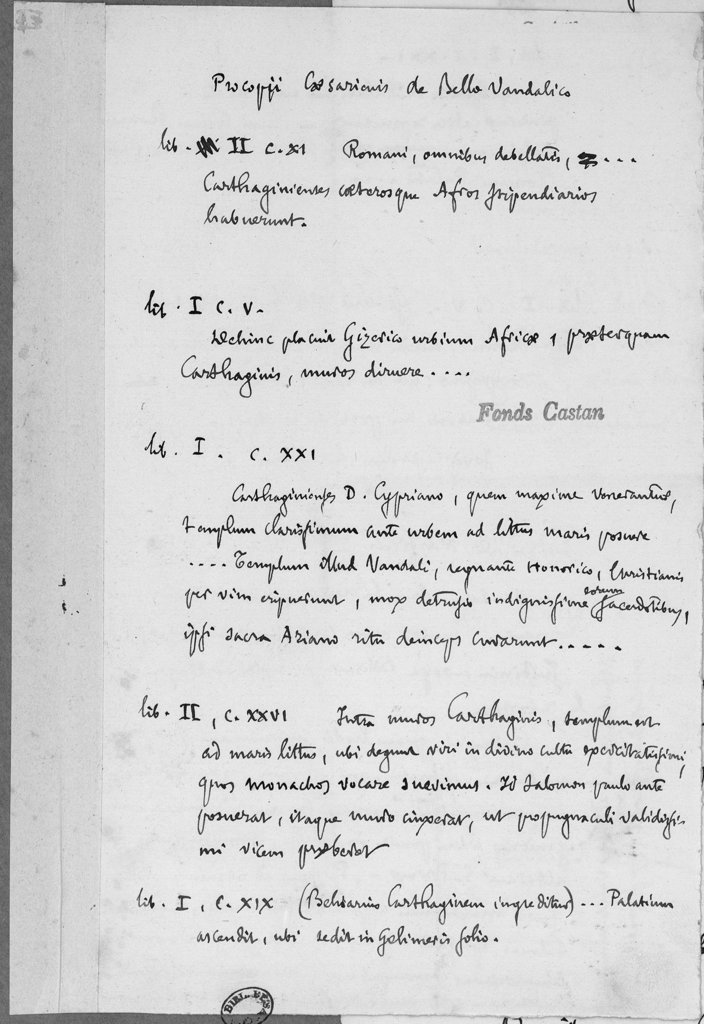 Procopji Cæsariensis de Bello Vandalico
lib. II c. XI Romani, omnibus debellatis, ...
Carthaginienses cæterosque Afros stipendiarios
habuerunt.
lib. I c. V.
Dehinc placuit Gizerico urbium Africæ, præterquam
Carthaginis, muros diruere ....
Fonds Castan
lib. I. c. XXI
Carthaginienses D. Cypriano, quem maxime venerantur,
templum clarissimum ante urbem ad littus maris posuere
.... Templum illud Vandali, regnante Honorico, Christianis
per vim eripuerunt, mox detrusis indignissime eorum sacerdotibus,
ipsi sacra Ariano ritu deinceps curarunt .....
lib. II, c. XXVI Intra muros Carthaginis, templum est
ad maris littus, ubi degunt viri in divino cultu exercitatissimi,
quos monachos vocare suevimus. Id Salomon paulo ante
posuerat, itaque muro cinxerat, ut propugnaculi validissi-
mi vicem præberet
lib. I, c. XIX (Belisarius Carthaginem ingreditur) ... Palatium
ascendit, ubi sedit in Gelimeris solio.